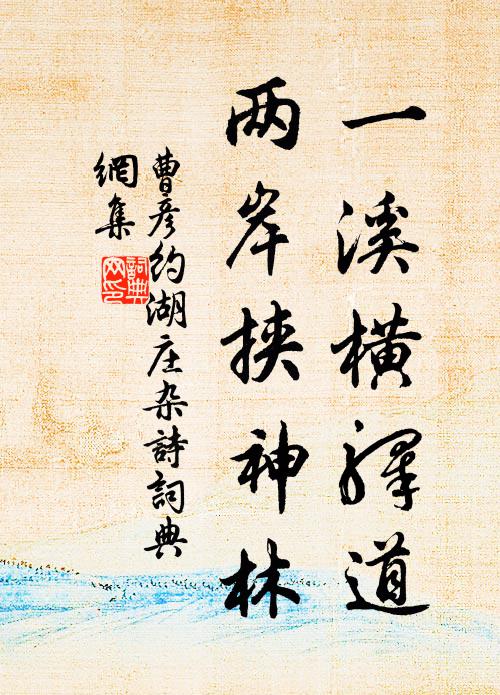 一溪横驛道
两岸挟神林
曹彦約湖庄杂詩詞典
網集
詞典
网印